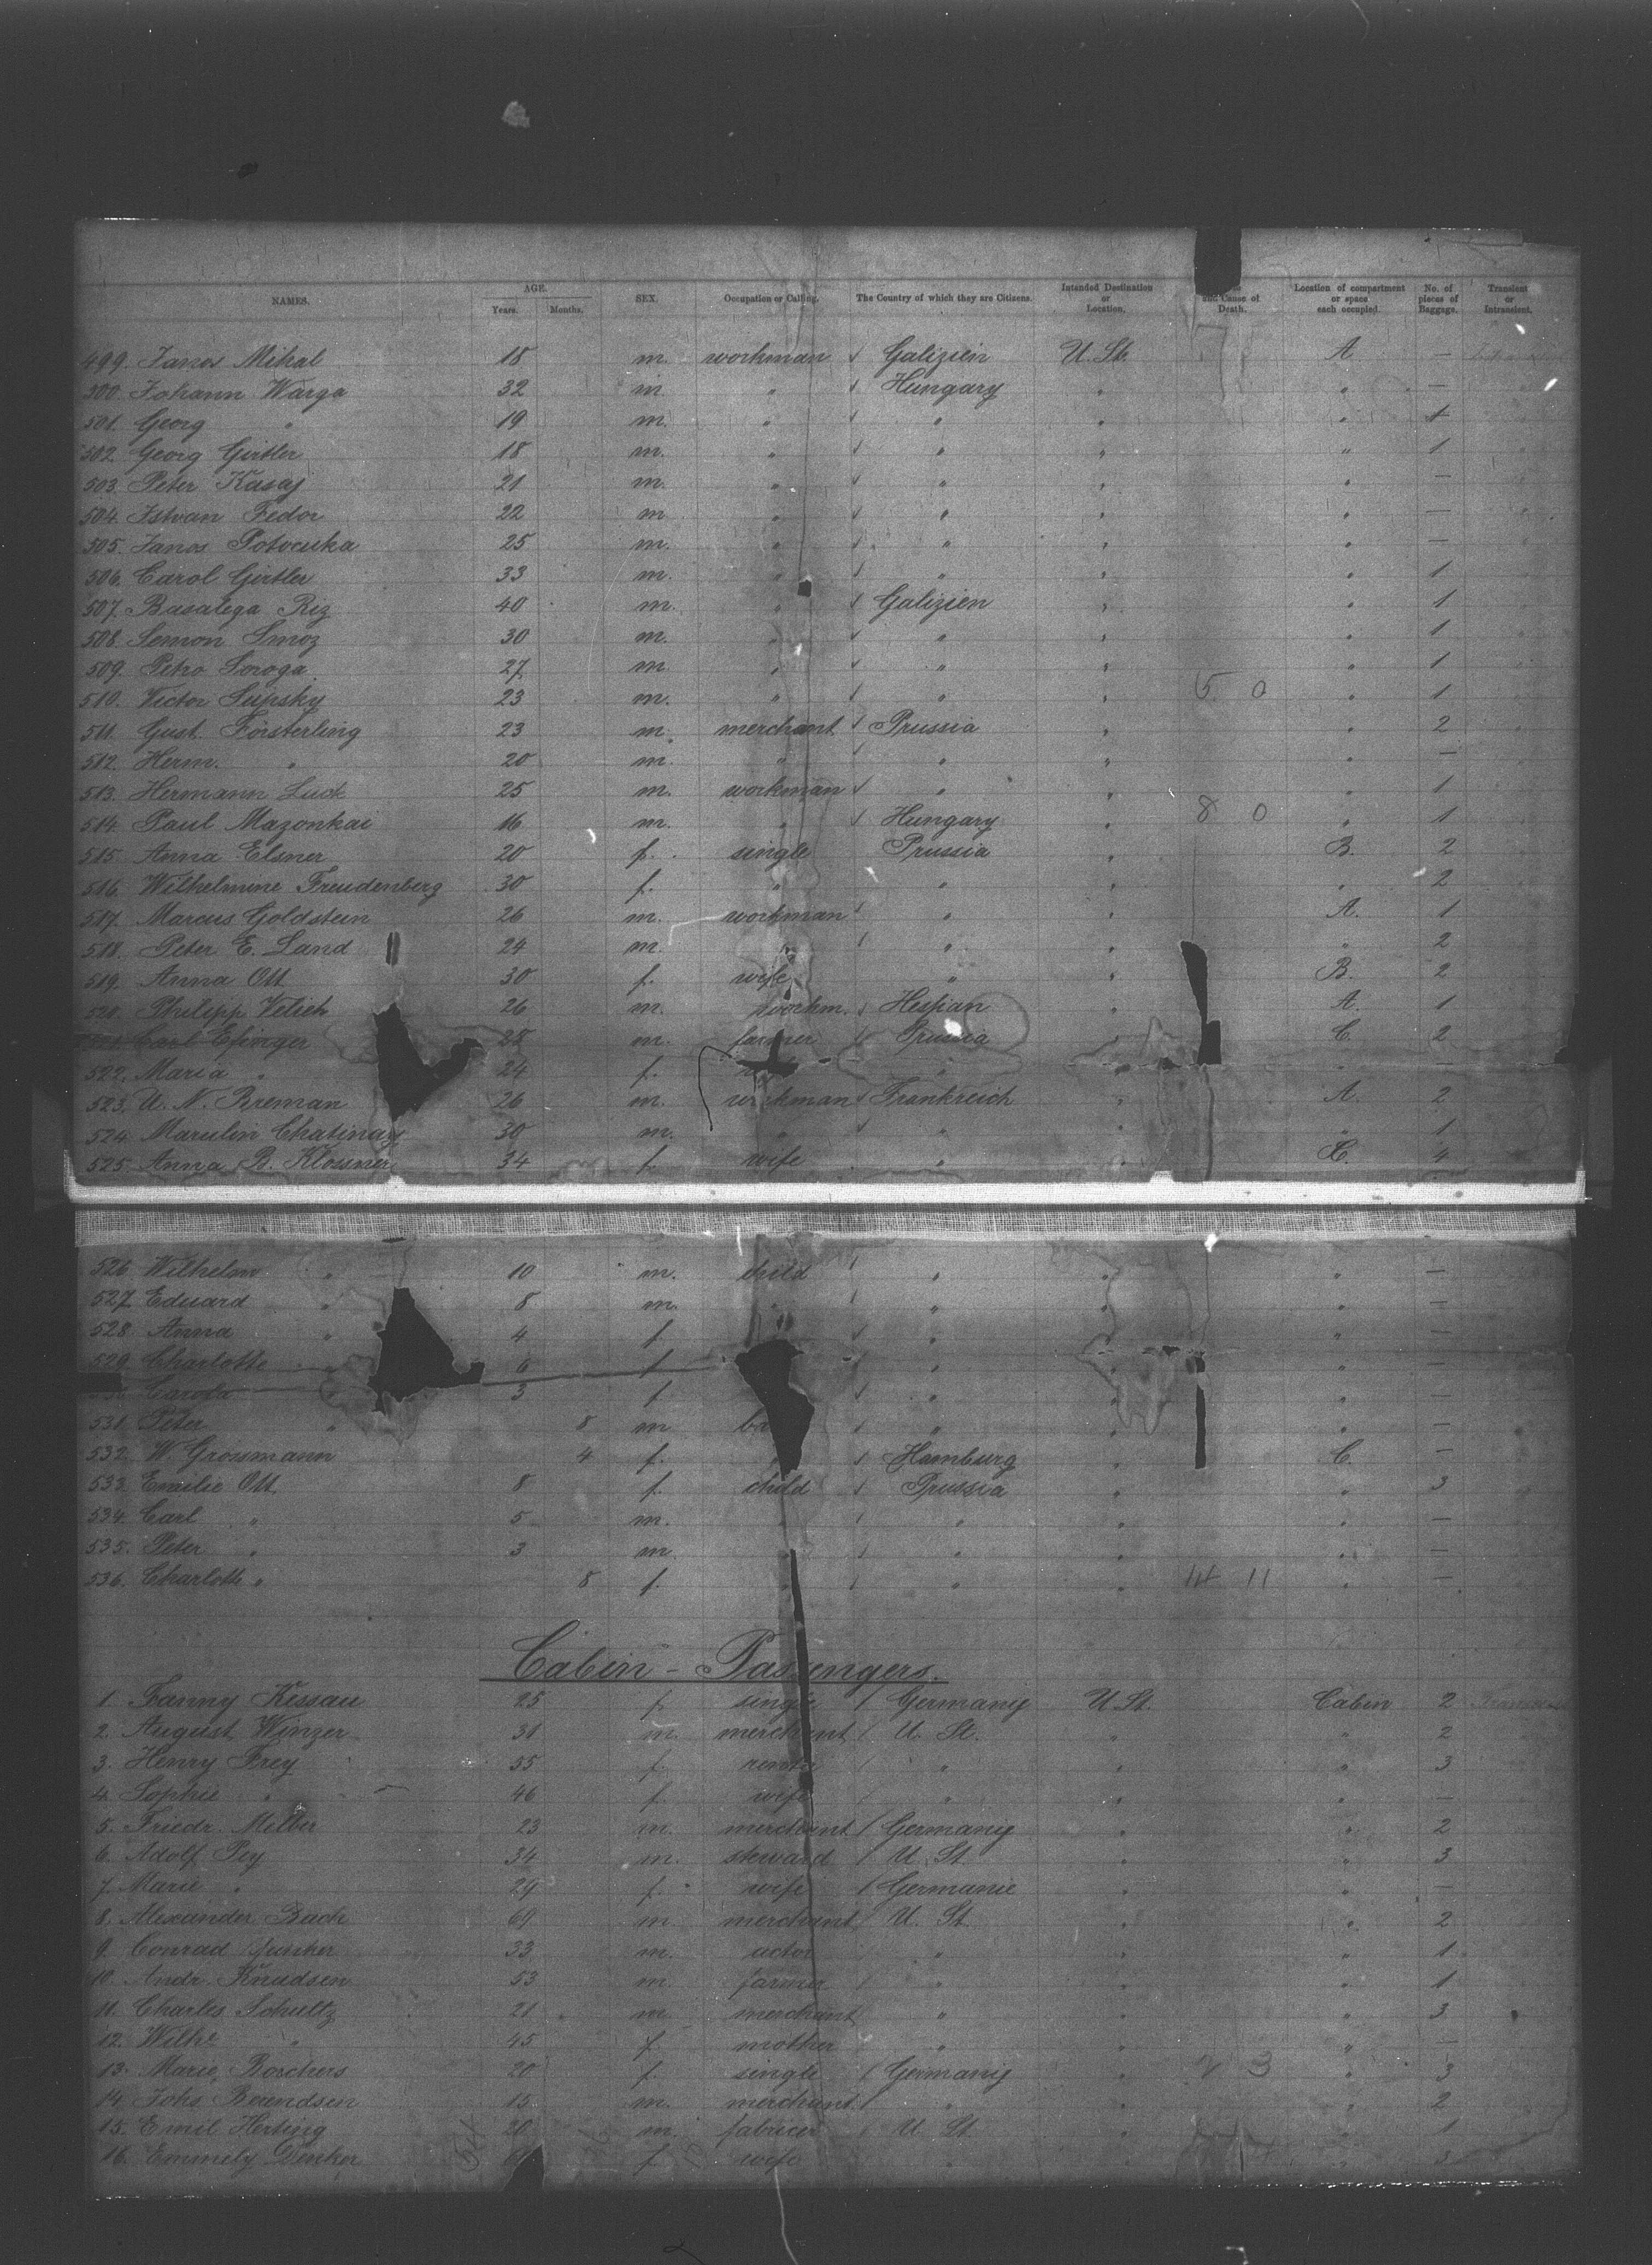 NAMES. AGE. Years. Months. SEX. Occupation or Calling. The Country of which they are Citizens. Intended Destination or Location. and Cause of Death. Location of compartment or space each occupied. No. of pieces of Baggage. Transient or Intransient.
499. Janos Mihal 18 m. workman Galizien U. St. A —
500. Johann Warga 32 m. " Hungary " " —
501. Georg " 19 m. " " " " 1
502. Georg Girtler 18 m. " " " " 1
503. Peter Kasaj 21 m. " " " " —
504. Istvan Fedor 22 m. " " " " —
505. Janos Potocuka 25 m. " " " " —
506. Carol Girtler 33 m. " " " " 1
507. Basalega Riz 40 m. " Galizien " " 1
508. Semon Smoz 30 m. " " " " 1
509. Petro Soroga 27 m. " " " " 1
510. Victor Supsky 23 m. " " " 5 0 " 1
511. Gust. Försterling 23 m. merchant Prussia " " 2
512. Herm. " 20 m. " " " " —
513. Hermann Luck 25 m. workman " " " 1
514. Paul Mazonkai 16 m. " Hungary " 8 0 " 1
515. Anna Elsner 20 f. single Prussia " B. 2
516. Wilhelmine Freudenberg 30 f. " " " " 2
517. Marcus Goldstein 26 m. workman " " A. 1
518. Peter E. Land 24 m. " " " " 2
519. Anna Ott 30 f. wife " " B. 2
520. Philipp Velich 26 m. workm. Hessian " A. 1
Carl Efinger 28 m. farmer Prussia " C. 2
522. Maria " 24 f. " " " —
523. U. N. Breman 26 m. workman Frankreich " A. 2
524. Marulin Chatinay 30 m. " " " " 1
525. Anna B. Klossner 34 f. wife " " C. 4
526. Wilhelm " 10 m. child " " " —
527. Eduard " 8 m. " " " " —
528. Anna " 4 f. " " " —
529. Charlotte 6 f. " " " —
Carola 3 f. " " " —
531. Peter " 8 m " " " —
532. W. Grossmann 4 f. " Hamburg " C. —
533. Emilie Ott 8 f. child Prussia " " 3
534. Carl " 5 m. " " " " —
535. Peter " 3 m. " " " —
536. Charlotte " 8 f. " " " 14 11 " —
Cabin - Passengers.
1. Fanny Kessau 25 f. single Germany U St. Cabin 2
2. August Winzer 31 m. merchant U. St. " " 2
3. Henry Frey 55 f. " " " 3
4. Sophie " 46 f. wife " " " —
5. Friedr. Melber 23 m. merchant Germany " " 2
6. Adolf Pey 34 m. steward U. St. " " 3
7. Marie " 29 f. wife Germanie " " —
8. Alexander Bach 69 m. merchant U. St. " " 2
9. Conrad Junker 33 m. actor " " " 1
10. Andr. Knudsen 53 m. farmer " " " 1
11. Charles Schultz 21 m. merchant " " " 3
12. Wilhe " 45 f. mother " " " —
13. Marie Borchers 20 f. single Germany " 2 3 " 3
14. Johs. Berendsen 15 m. merchant " " " 2
15. Emil Herting 20 m. fabricer U St. " " 1
16. Emmely Denker f. wife " " " 3